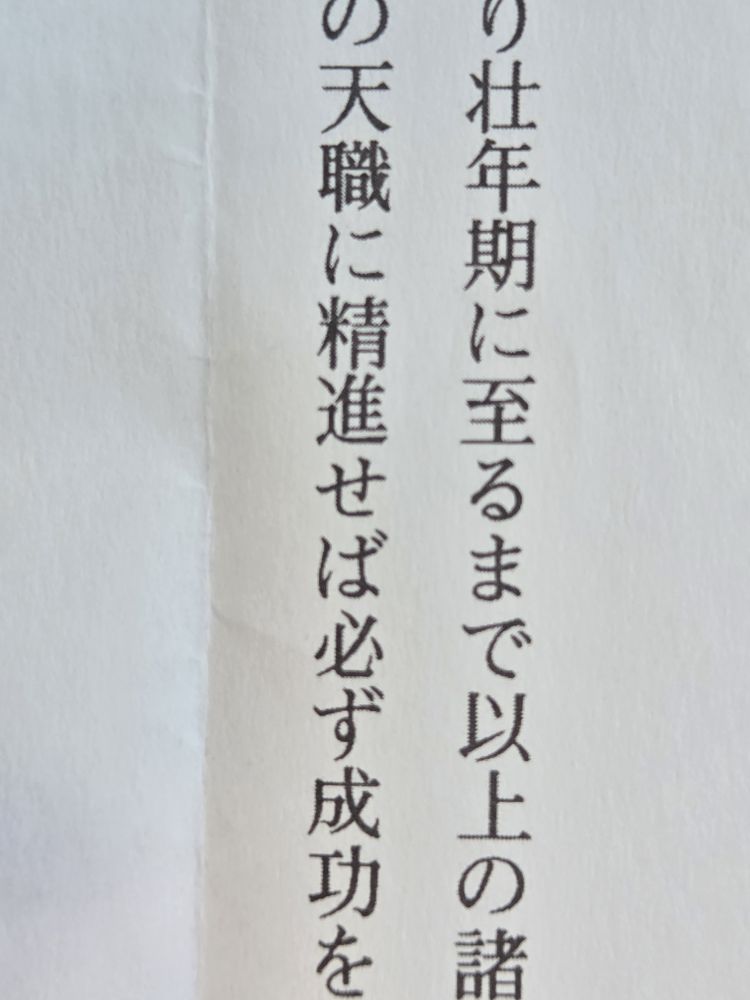 り壮年期に至るまで以上の諸
の天職に精進せば必ず成功を